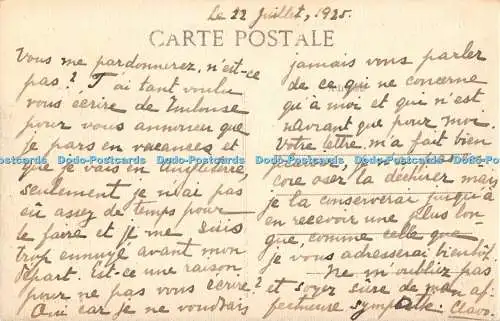 Le 22 Juillet, 1925.
CARTE POSTALE
Vous me pardonnerez, n'est-ce
pas? J'ai tant voulu
vous écrire de Toulouse
pour vous annoncer que
je pars en vacances et
que je vais en Angleterre,
seulement je n'ai pas
eu assez de temps pour
le faire et je me suis
trop ennuyé avant mon
départ. Est-ce une raison
pour ne pas vous écrire?
Oui car je ne voudrais
jamais vous parler
de ce qui ne concerne
qu'à moi et qui n'est
navrant que pour moi.
Votre lettre, m'a fait bien
core oser la déchirer mais
je la conserverai jusqu'à
en recevoir une plus lon-
gue, comme celle que
je vous adresserai bientôt.
Ne m'oubliez pas
et soyez sûre de mon af-
fectueuse sympathie.
Dodo-Postcards Dodo-Postcards Dodo-Postcards Dodo-Postcards Dodo-Postcards Dodo-Postcards